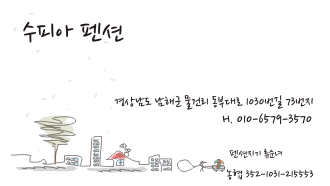 수피아 펜션
경상남도 남해군 물건리 동부대로 1030번길 73번지
H. 010-6579-3570
펜션지기 홍순녀
농협 352-1031-215553